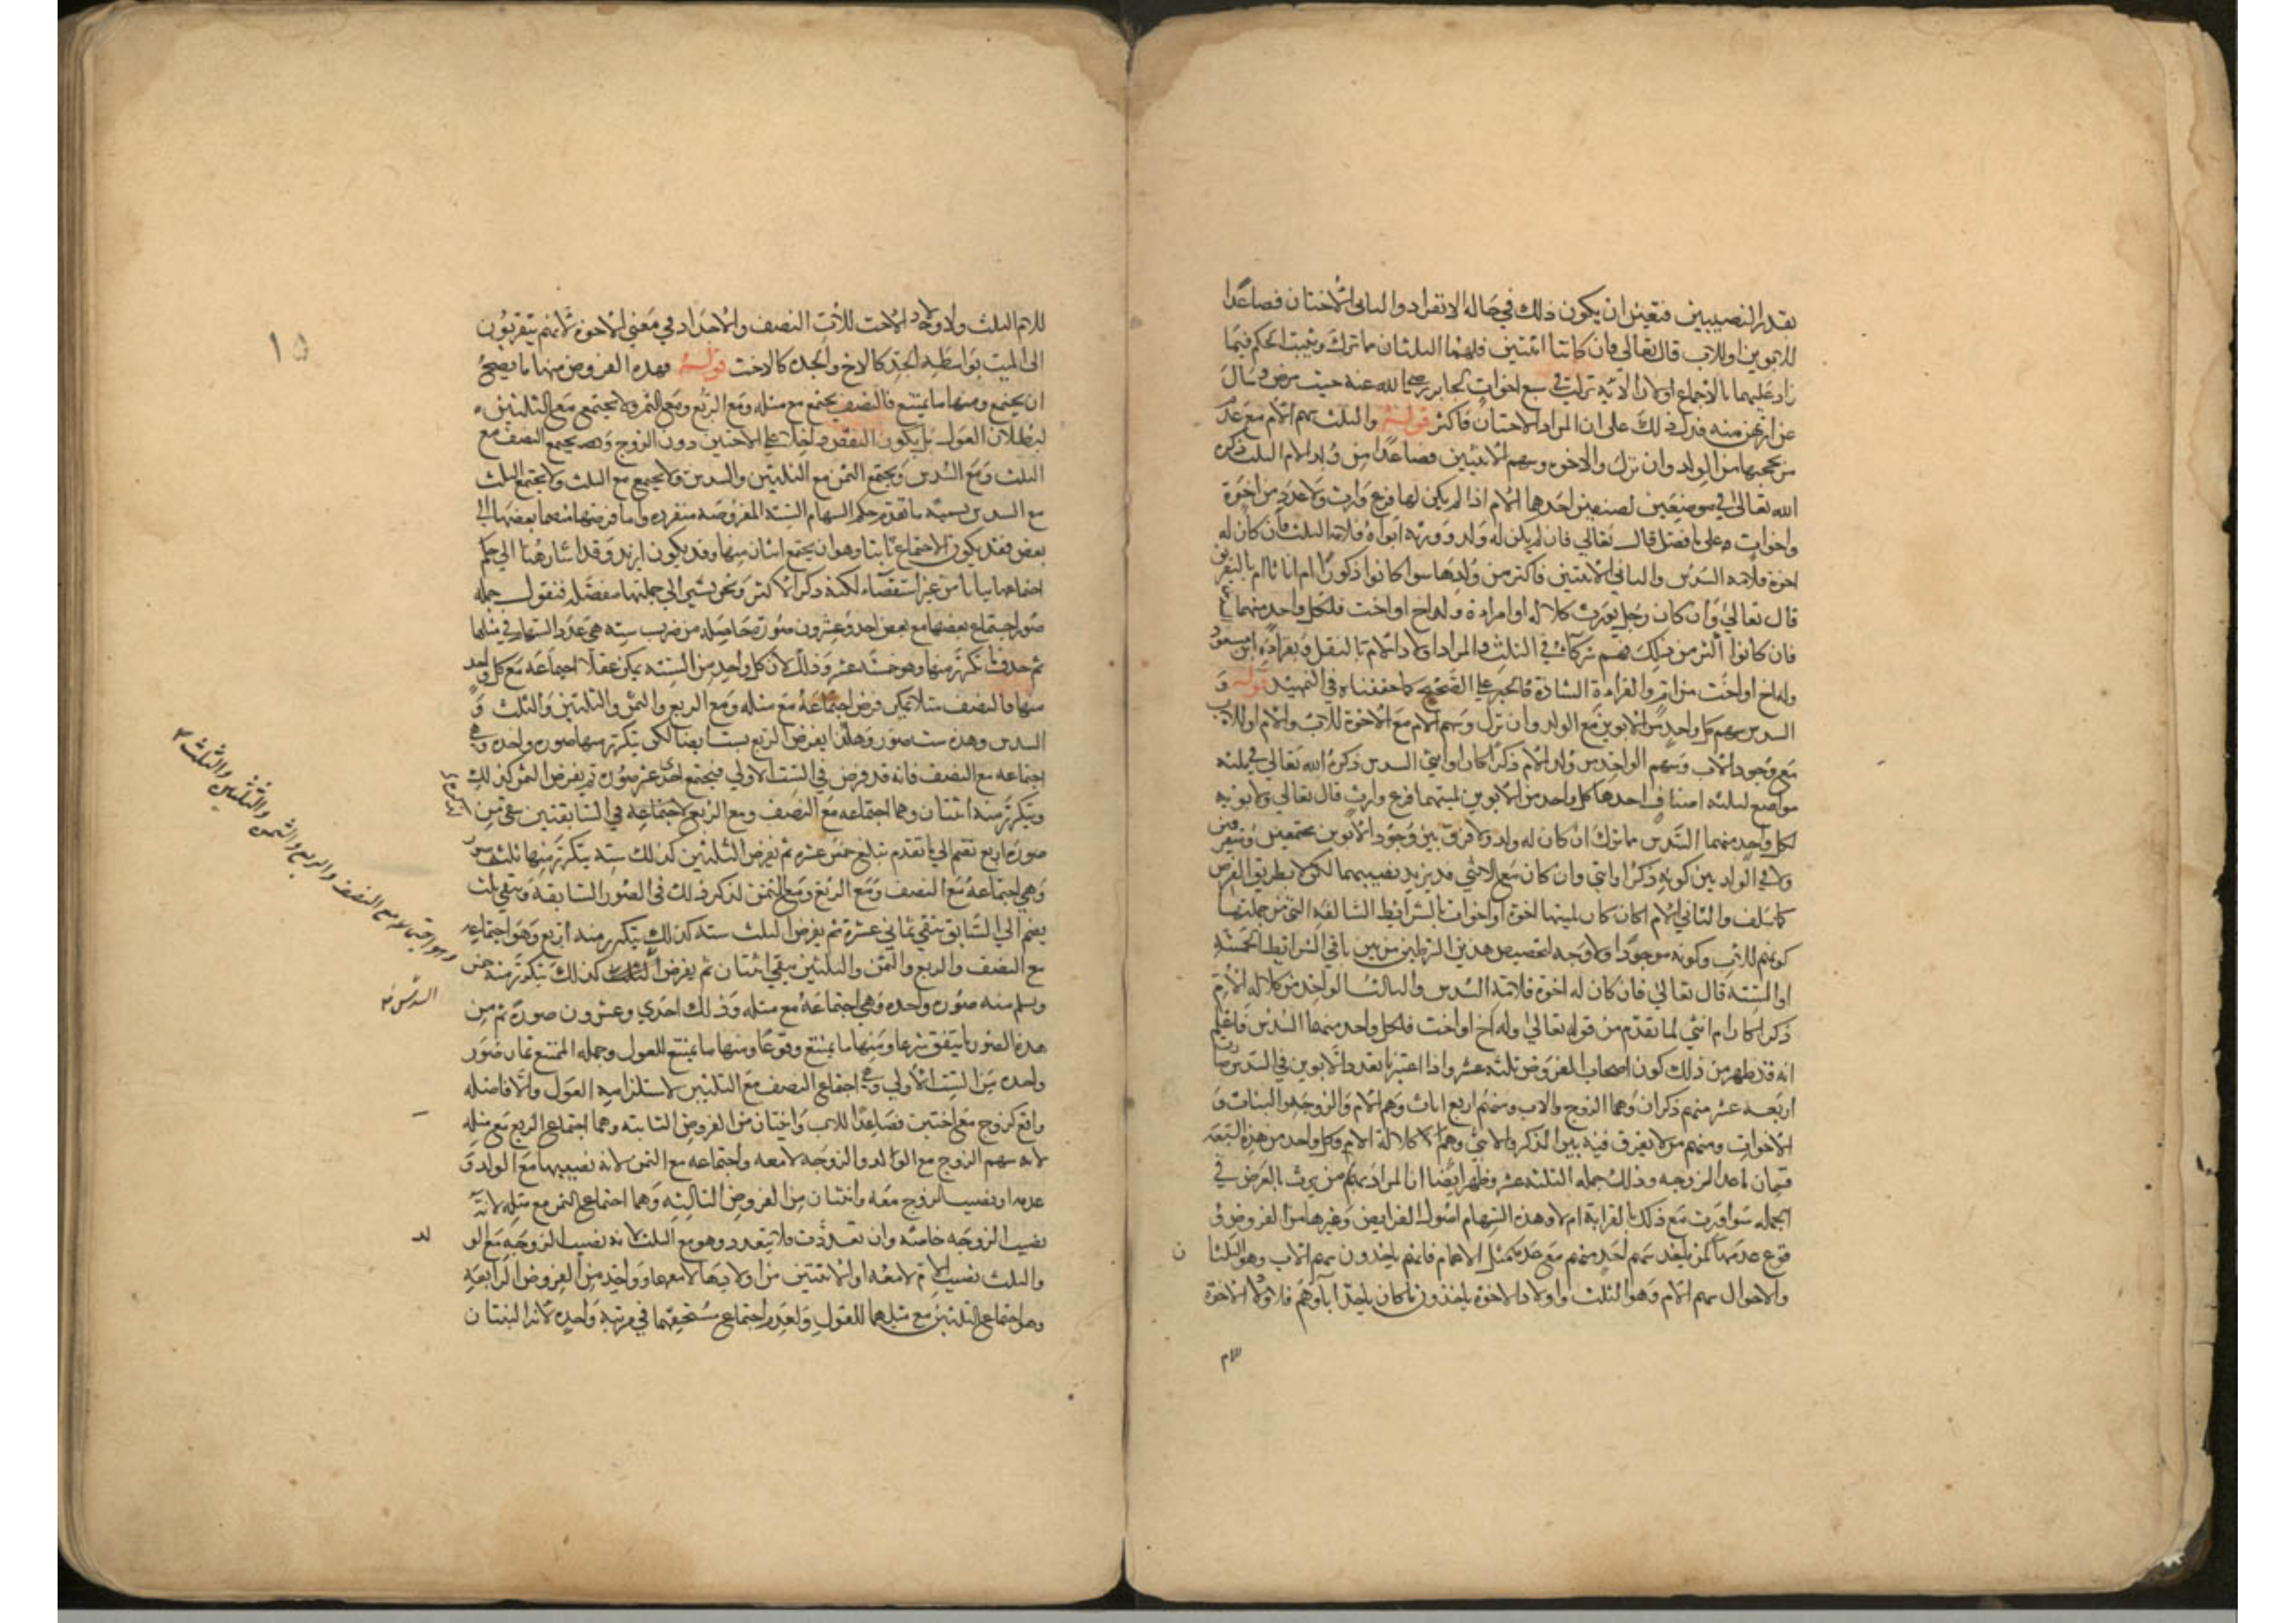 بقدر النصيبين فتعين ان يكون ذلك في حاله الانفراد والثاني الاختان فصاعدا
للابوين او للاب قال تعالى فان كانتا اثنتين فلهما الثلثان مما ترك ويثبت الحكم فيما
زاد عليهما بالاجماع اولان الاية نزلت في سبع اخوات لجابر رضي الله عنه حيث مرض وسال
عن ارثهن منه فدل ذلك على ان المراد الاختان فاكثر قوله والثلث سهم الام مع عدم
من يحجبها من الولد وان نزل والاخوه وسهم الاثنين فصاعدا من ولد الام الثلث ذكره
الله تعالى في موضعين لصنفين احدهما الام اذا لم يكن لها فرع وارث ولا عدد من اخوة
واخوات على ما فصل قال تعالى فان لم يكن له ولد وورثه ابواه فلامه الثلث فان كان له
اخوة فلامه السدس والثاني الاثنين فاكثر من ولدها سوا كانوا ذكورا ام اناثا ام بالتفريق
قال تعالى وان كان رجل يورث كلاله او امراة وله اخ او اخت فلكل واحد منهما
فان كانوا اكثر من ذلك فهم شركاء في الثلث والمراد اولاد الام بالنقل وبقراءة ابن مسعود
وله اخ او اخت من ام والقراءة الشاذة كالخبر على الصحيح كما حققناه في التمهيد قوله و
السدس سهم كل واحد من الابوين مع الولد وان نزل وسهم الام مع الاخوة للاب والام او للاب
مع وجود الاب وسهم الواحد من ولد الام ذكرا كان او انثى السدس ذكره الله تعالى في ثلثه
مواضع لثلثه اصناف احدها كل واحد من الابوين لميتهما فرع وارث قال تعالى ولابويه
لكل واحد منهما السدس مما ترك ان كان له ولد ولا فرق بين وجود الابوين مجتمعين ومتفرقين
ولا في الولد بين كونه ذكرا او انثى وان كان مع الانثى قد يزيد نصيبهما لكن لا بطريق الفرض
كما سلف والثاني الام اذا كان لميتها اخوة او اخوات بالشرايط السالفه التي من جملتها
كونهم للاب وكونه موجودا ولا وجه لتخصيص هذين الشرطين من بين باقي الشرايط الخمسة
او الستة قال تعالى فان كان له اخوة فلامه السدس والثالث الواحد من كلاله الام
ذكرا كان ام انثى لما تقدم من قوله تعالى وله اخ او اخت فلكل واحد منهما السدس فاعلم
انه قد ظهر من ذلك كون اصحاب الفروض ثلثه عشر واذا اعتبرنا تعدد الابوين في السدس صارت
اربعه عشر منهم ذكران وهما الزوج والاب ومنهم اربع اناث وهم الام والزوجه والبنات و
الاخوات ومنهم من لا يفرق فيه بين الذكر والانثى وهم كلالة الام وكل واحد من هذه السبعه
قسمان ما عدا الزوجه وذلك جمله الثلثه عشر وظهر ايضا ان المراد بهم من يرث بالفرض في
الجمله سوا ورث مع ذلك بالقرابة ام لا وهذه السهام اصول الفرايض وغيرها من الفروض
فرع عنها كمن ياخذ سهم احد منهم مع عدمه كمثل الاعمام فانهم ياخذون سهم الاب وهو الثلثان
والاخوال سهم الام وهو الثلث واولاد الاخوة ياخذون ما كان ياخذ اباوهم فلاولاد الاخوة
للام
١٥
للام الثلث ولاولاد الاخت للاب النصف والاجداد في معنى الاخوة لانهم يتقربون
الى الميت بواسطه الجد كالاخ والجده كالاخت قوله وهذه الفروض منها ما يصح
ان يجتمع ومنها ما يمتنع فالنصف يجتمع مع مثله ومع الربع ومع الثمن ولا يجتمع مع الثلثين
لبطلان العول بل يكون النقص داخلا على الاختين دون الزوج وقد يجتمع النصف مع
الثلث ومع السدس ويجتمع الثمن مع الثلثين والسدس ولا يجتمع مع الثلث ولا يجتمع الثلث
مع السدس تسمية ما تقدم حكم السهام الستة المفروضه منفرده واما فرضها منضما بعضها الى
بعض فقد يكون الاجتماع ثنائيا وهو ان يجتمع اثنان منها وقد يكون ازيد وقد اشار هنا الى حكم
اجتماعها ثنائيا من غير استقصاء لكنه ذكر الاكثر ونحن نشير الى جملتها مفصله فنقول جمله
صور اجتماع بعضها مع بعض احد وعشرون صورة حاصله من ضرب سته هي عدد السهام في مثلها
ثم حذف ما تكرر منها وهو خمسة عشر وذلك لان كل واحد من الستة يمكن عقلا اجتماعه مع كل واحد
منها فالنصف مثلا يمكن فرض اجتماعه مع مثله ومع الربع والثمن والثلثين والثلث و
السدس وهذه ست صور وهكذا يفرض الربع ستا ايضا لكن يتكرر منها صوره واحده وهي
اجتماعه مع النصف فانه قد فرض في الست الاولى فيجتمع احدى عشر صورة ثم يفرض الثمن كذلك
ويتكرر منه اثنتان وهما اجتماعه مع النصف ومع الربع لاجتماعه في السابقتين يبقى من
صوره اربع تضم الى ما تقدم تبلغ خمس عشره ثم يفرض الثلثين كذلك سته يتكرر منها ثلث صور
وهي اجتماعه مع النصف ومع الربع ومع الثمن لذكر ذلك في الصور السابقه ويبقى ثلث
يضم الى السابق يبقى ثماني عشرة ثم يفرض الثلث سته كذلك يتكرر منه اربع وهو اجتماعه
مع النصف والربع والثمن والثلثين يبقى اثنتان ثم يفرض كذلك يتكرر منه خمس
ويسلم منه صوره واحده وهي اجتماعه مع مثله وذلك احدى وعشرون صورة ثم من
هذه الصور ما يتفق شرعا ومنها ما يمتنع وقوعا ومنها ما يمتنع للعول وجمله الممتنع ثمان صور
واحده من الست الاولى وهي اجتماع النصف مع الثلثين لاستلزامه العول والا فاصله
واقع كزوج مع اختين فصاعدا للاب واثنتان من الفروض الثانيه وهما اجتماع الربع مع مثله
لانه سهم الزوج مع الولد والزوجه لا معه واجتماعه مع الثمن لانه نصيبها مع الولد و
عدمه او نصيب الزوج معه واثنتان من الفروض الثالثه وهما اجتماع الثمن مع مثله لانه
نصيب الزوجه خاصة وان تعددت فلا يتعدد وهو مع الثلث لانه نصيب الزوجه مع الولد
والثلث نصيب الام لا معه او الاثنين من اولادها لا معها وواحد من الفروض الرابعه
وهو اجتماع الثلثين مع مثلهما للعول ولعدم اجتماع مستحقهما في مرتبة واحده لانه البنتان
وهو اجتماعه مع النصف والربع والثمن والثلثين والثلث
السدس